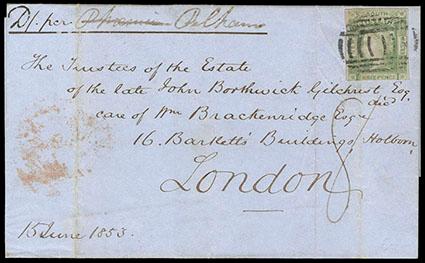 D/. per Phoenician Pelham
SOUTH
THREE PENCE
The Trustees of the Estate
of the late John Borthwick Gilchrist Esq.
decd
care of Wm Brackenridge Esqre
16. Bartlett's Buildings, Holborn,
London
15 June 1853.